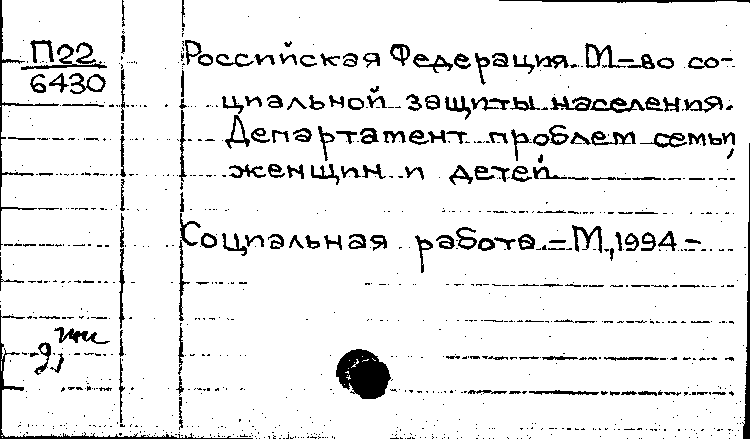 П22
6430
Российская Федерация. М-во со-
циальной защиты населения.
Департамент проблем семьи,
женщин и детей
Социальная работа. – М, 1994 –